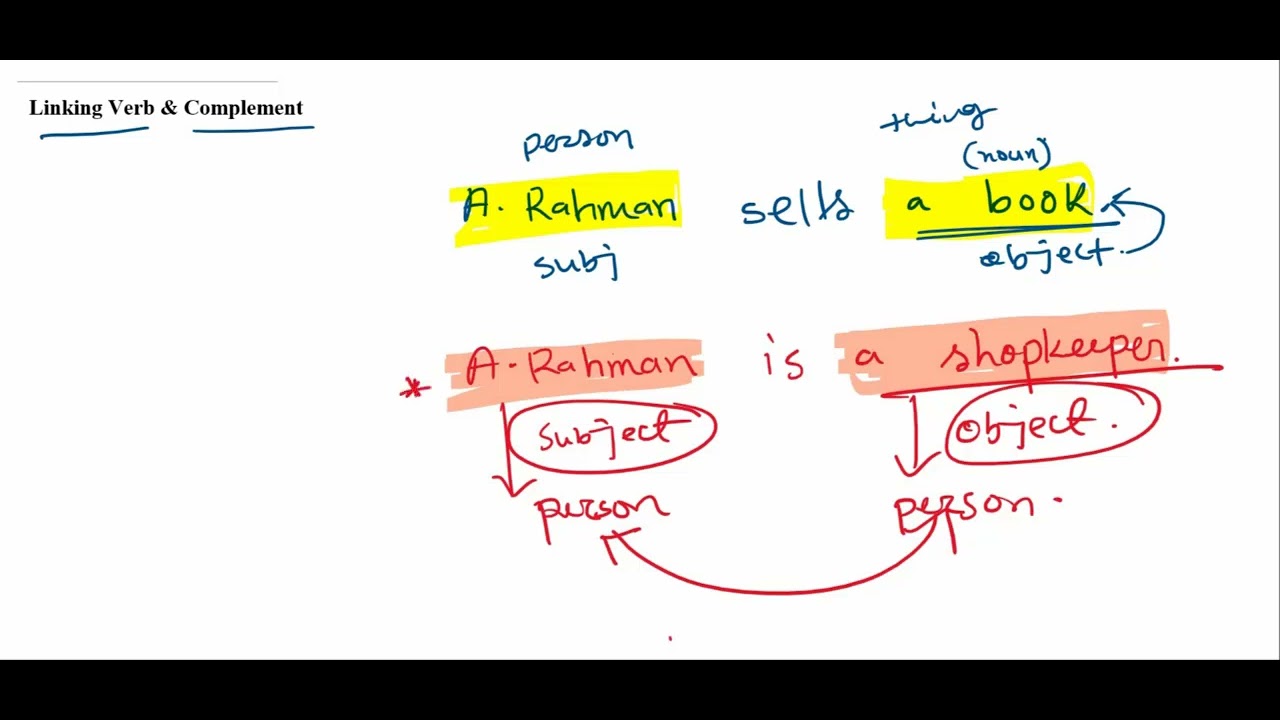 Linking Verb & Complement
person
thing
(noun)
A. Rahman sells a book
subj
object.
* A. Rahman is a shopkeeper.
subject
object.
person
person.